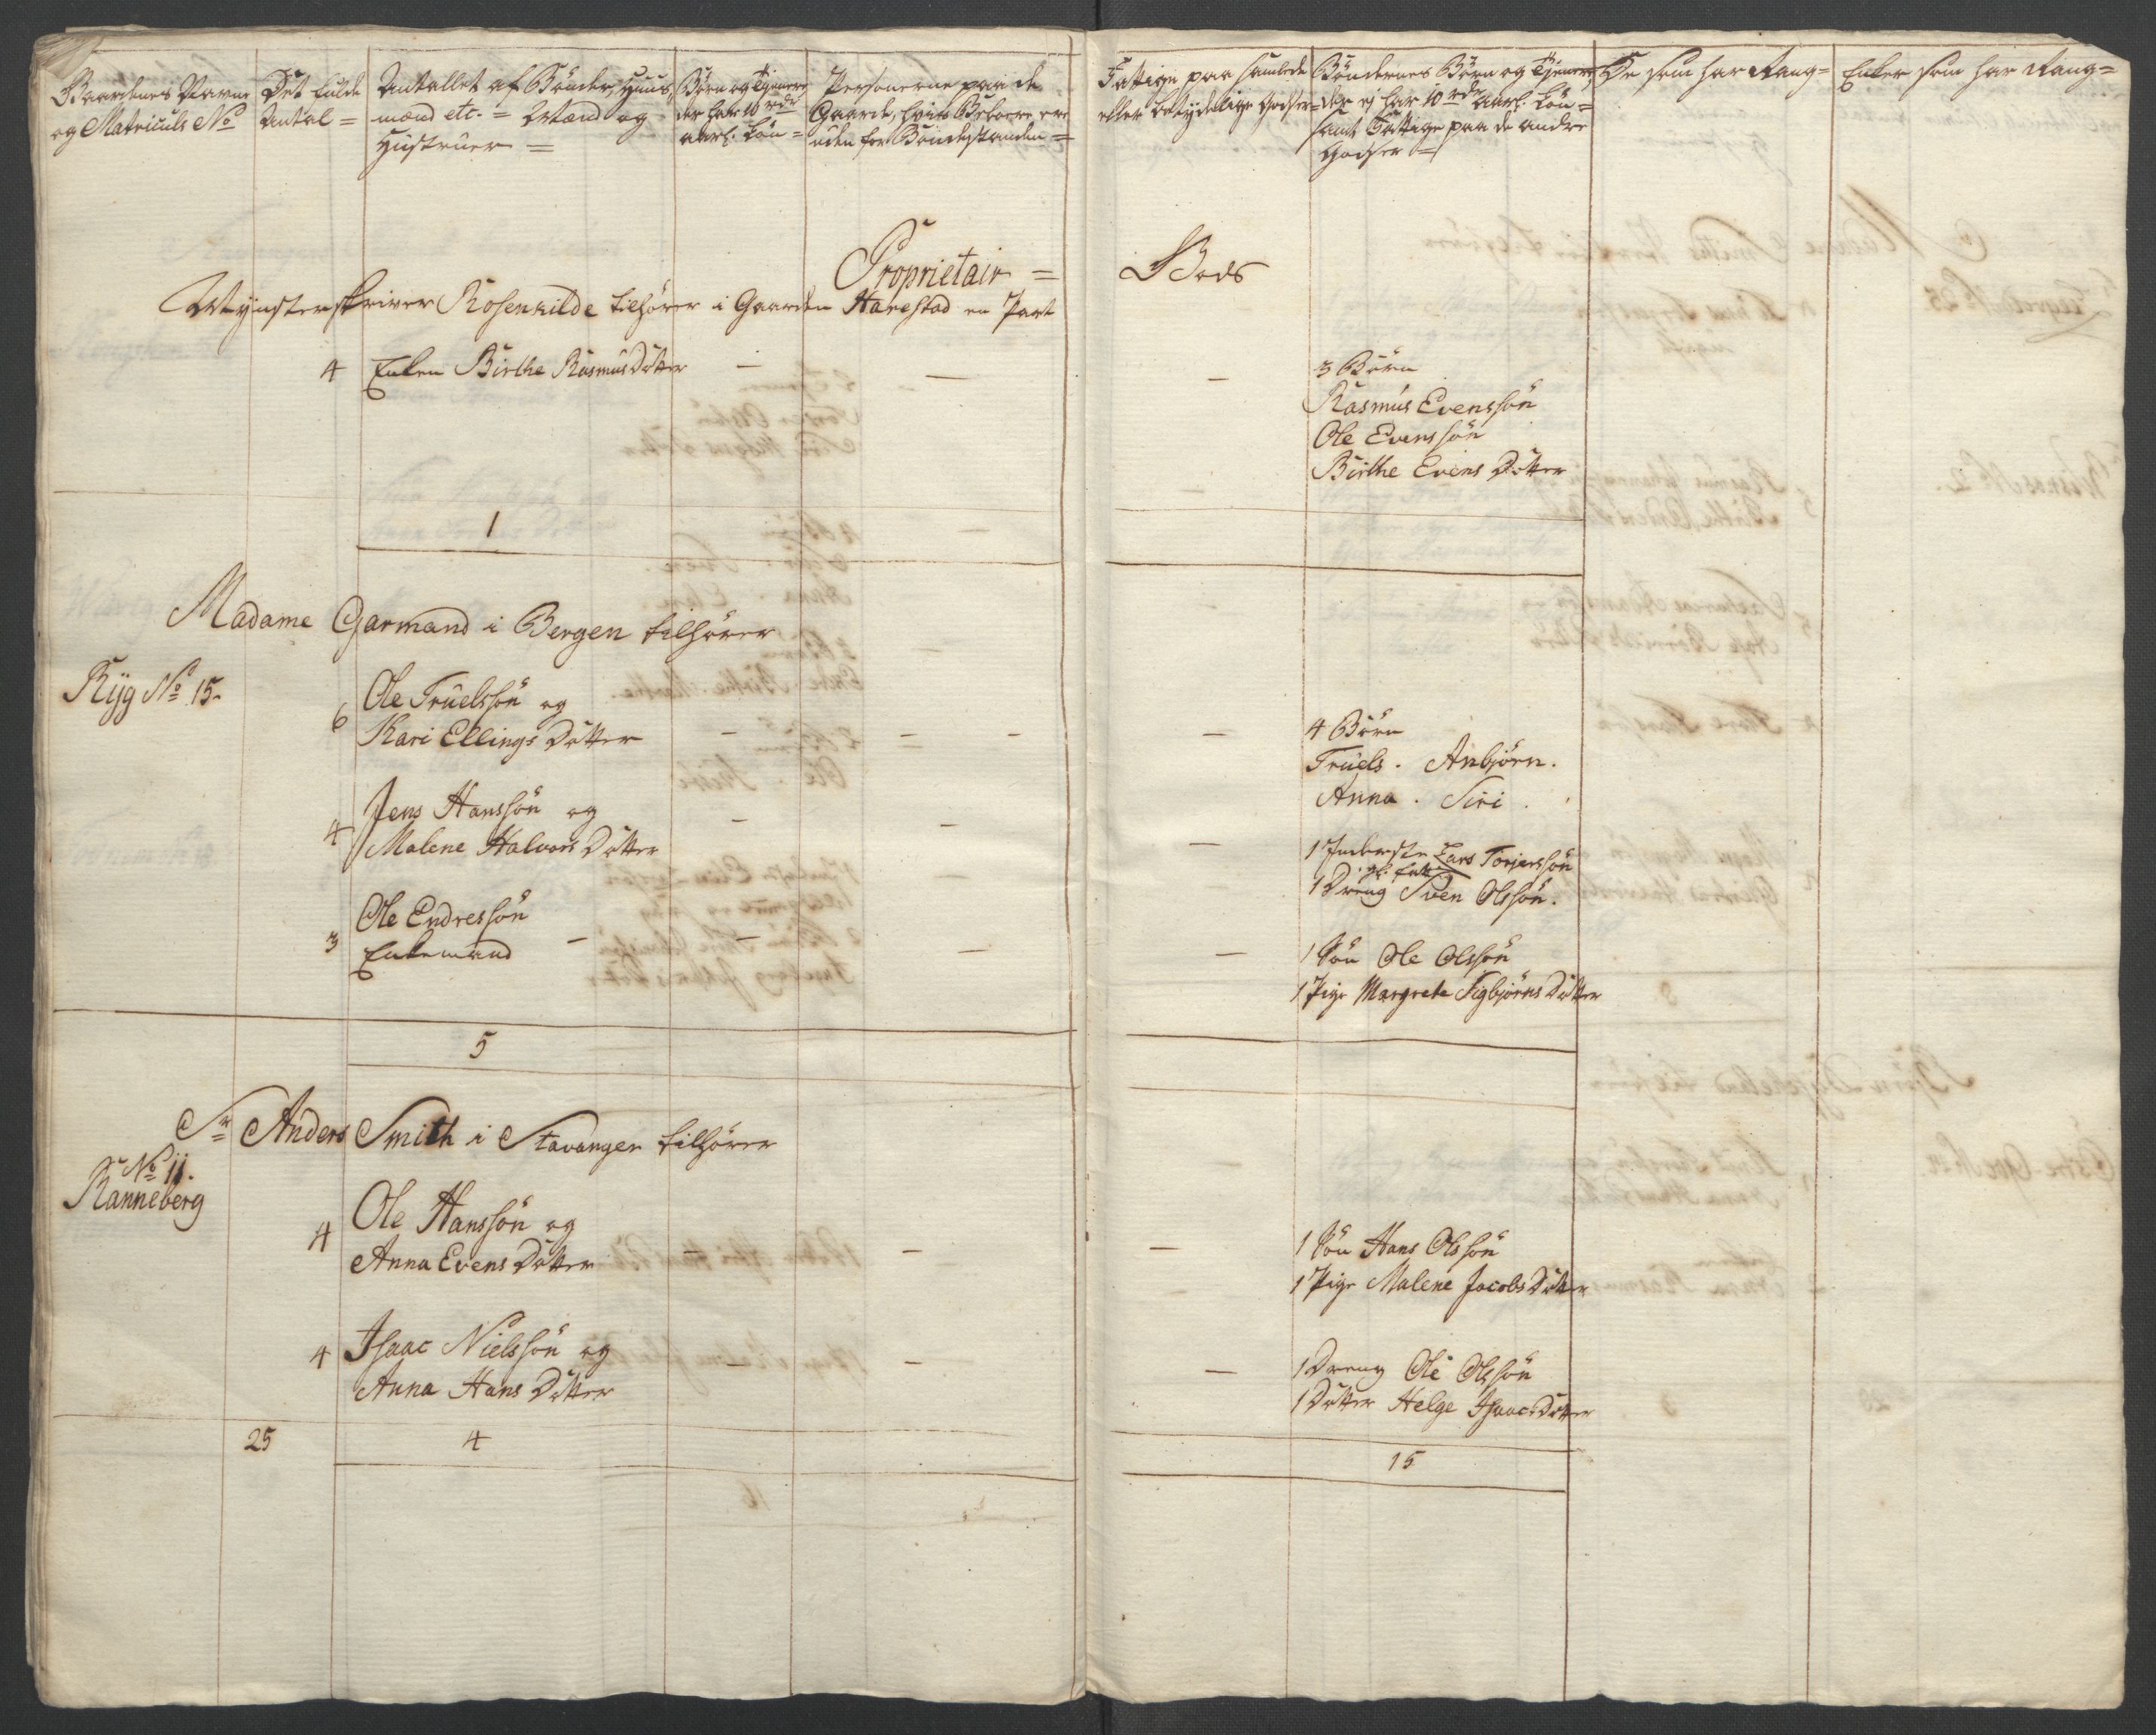 Gaardenes Navne
og Matriculs No
Det fulde
Antal =
Antallet af Bönder, Huus
mænd etc. = Mænd og
Hustruer =
Börn og Tjenere
der har 10 rdr
aarl. Lön =
Personerne paa de
Gaarde, hvis Beboere ere
uden for Bondestanden =
Fattige paa samlede
eller betydelige Godser =
Böndernes Börn og Tjenere
der ej har 10 rdr aarl. Lön =
samt Fattige paa de andre
Godser =
De som har Rang =
Enker som har Rang =
Proprietair = Gods
Mynsterskriver Rosenkilde tilhörer i Gaarden Harestad en Part
4 Enken Birthe RasmusDatter - - -
3 Börn
Rasmus Evenssön
Ole Evenssön
Birthe Evens Datter
1
Madame Garmand i Bergen tilhörer
Ryg No 15.
6 Ole Truelssön og
Kari Ellings Datter - - - -
4 Börn
Truels. Anbjörn.
Anna. Siri.
4 Jens Hanssön og
Malene Halvors Datter - - -
1 Inderste Lars Torjerssön
1 Dreng Sven Olssön.
3 Ole Endressön
Enkemand - - - -
1 Sön Ole Olssön
1 Pige Margrete Sigbjörns Datter
5
Sr Anders Smith i Stavanger tilhörer
No 11.
Ranneberg
4 Ole Hanssön og
Anna Evens Datter - - -
1 Sön Hans Olssön
1 Pige Malene Jacobs Datter
4 Isaac Nielssön og
Anna Hans Datter - - -
1 Dreng Ole Olssön
1 Datter Helge Isaacs Datter
25 4 15